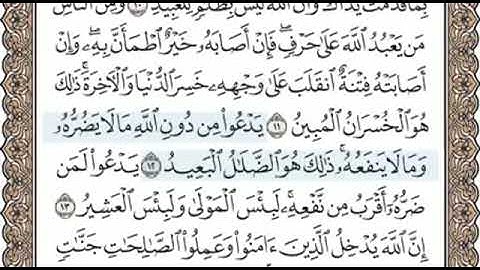 بِمَا قَدَّمَتْ يَدَاكَ وَأَنَّ ٱللَّهَ لَيْسَ بِظَلَّٰمٍ لِّلْعَبِيدِ ١٠ وَمِنَ ٱلنَّاسِ
مَن يَعْبُدُ ٱللَّهَ عَلَىٰ حَرْفٍ ۖ فَإِنْ أَصَابَهُۥ خَيْرٌ ٱطْمَأَنَّ بِهِۦ ۖ وَإِنْ
أَصَابَتْهُ فِتْنَةٌ ٱنقَلَبَ عَلَىٰ وَجْهِهِۦ خَسِرَ ٱلدُّنْيَا وَٱلْءَاخِرَةَ ۚ ذَٰلِكَ
هُوَ ٱلْخُسْرَانُ ٱلْمُبِينُ ١١ يَدْعُوا۟ مِن دُونِ ٱللَّهِ مَا لَا يَضُرُّهُۥ
وَمَا لَا يَنفَعُهُۥ ۚ ذَٰلِكَ هُوَ ٱلضَّلَٰلُ ٱلْبَعِيدُ ١٢ يَدْعُوا۟ لَمَن
ضَرُّهُۥٓ أَقْرَبُ مِن نَّفْعِهِۦ ۚ لَبِئْسَ ٱلْمَوْلَىٰ وَلَبِئْسَ ٱلْعَشِيرُ ١٣
إِنَّ ٱللَّهَ يُدْخِلُ ٱلَّذِينَ ءَامَنُوا۟ وَعَمِلُوا۟ ٱلصَّٰلِحَٰتِ جَنَّٰتٍ